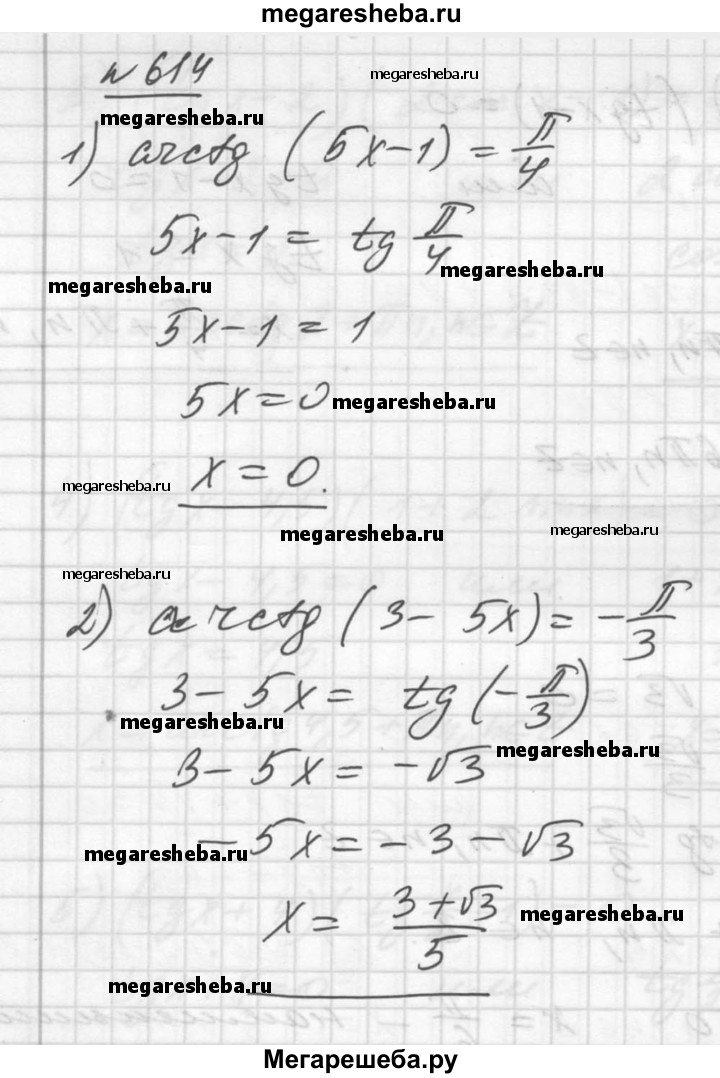 megaresheba.ru
№ 614
megaresheba.ru
megaresheba.ru
1) arctg (5x-1) = π/4
5x-1 = tg π/4
megaresheba.ru
megaresheba.ru
5x-1 = 1
5x = 0
megaresheba.ru
x = 0.
megaresheba.ru
megaresheba.ru
megaresheba.ru
megaresheba.ru
2) arctg (3- 5x) = -π/3
3 - 5x = tg (-π/3)
megaresheba.ru
megaresheba.ru
3 - 5x = -√3
- 5x = -3 - √3
megaresheba.ru
x = (3+√3)/5
megaresheba.ru
megaresheba.ru
Мегарешеба.ру